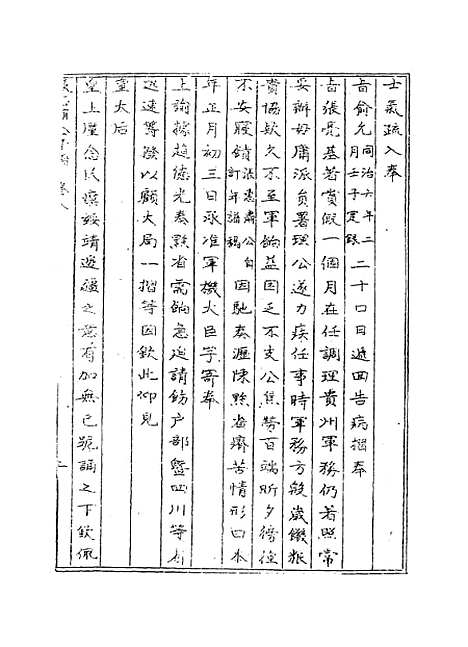 士氣疏入奉
旨俞允同治六年二月壬子定錄二十口日遞回告病摺奉
旨張亮基著賞假一個月在任調理貴州軍務仍著照常
妥辦毋庸派員署理公遂力疾任事時軍務方殷歲饑糧
費協款久不至軍餉益因乏不支公焦勞百端昕夕徬徨
不安寢饋張惠肅公自訂年譜稿因馳奏瀝陳黔省窘苦情形曰本
年正月初三日承准軍機大臣字寄奉
上諭據趙德光奏黔省需餉急迫請飭戶部暨四川等省
迅速籌發以顧大局一摺等因欽此仰見
皇太后
皇上廑念民瘼綏靖邊疆之意有加無已跪誦之下欽佩